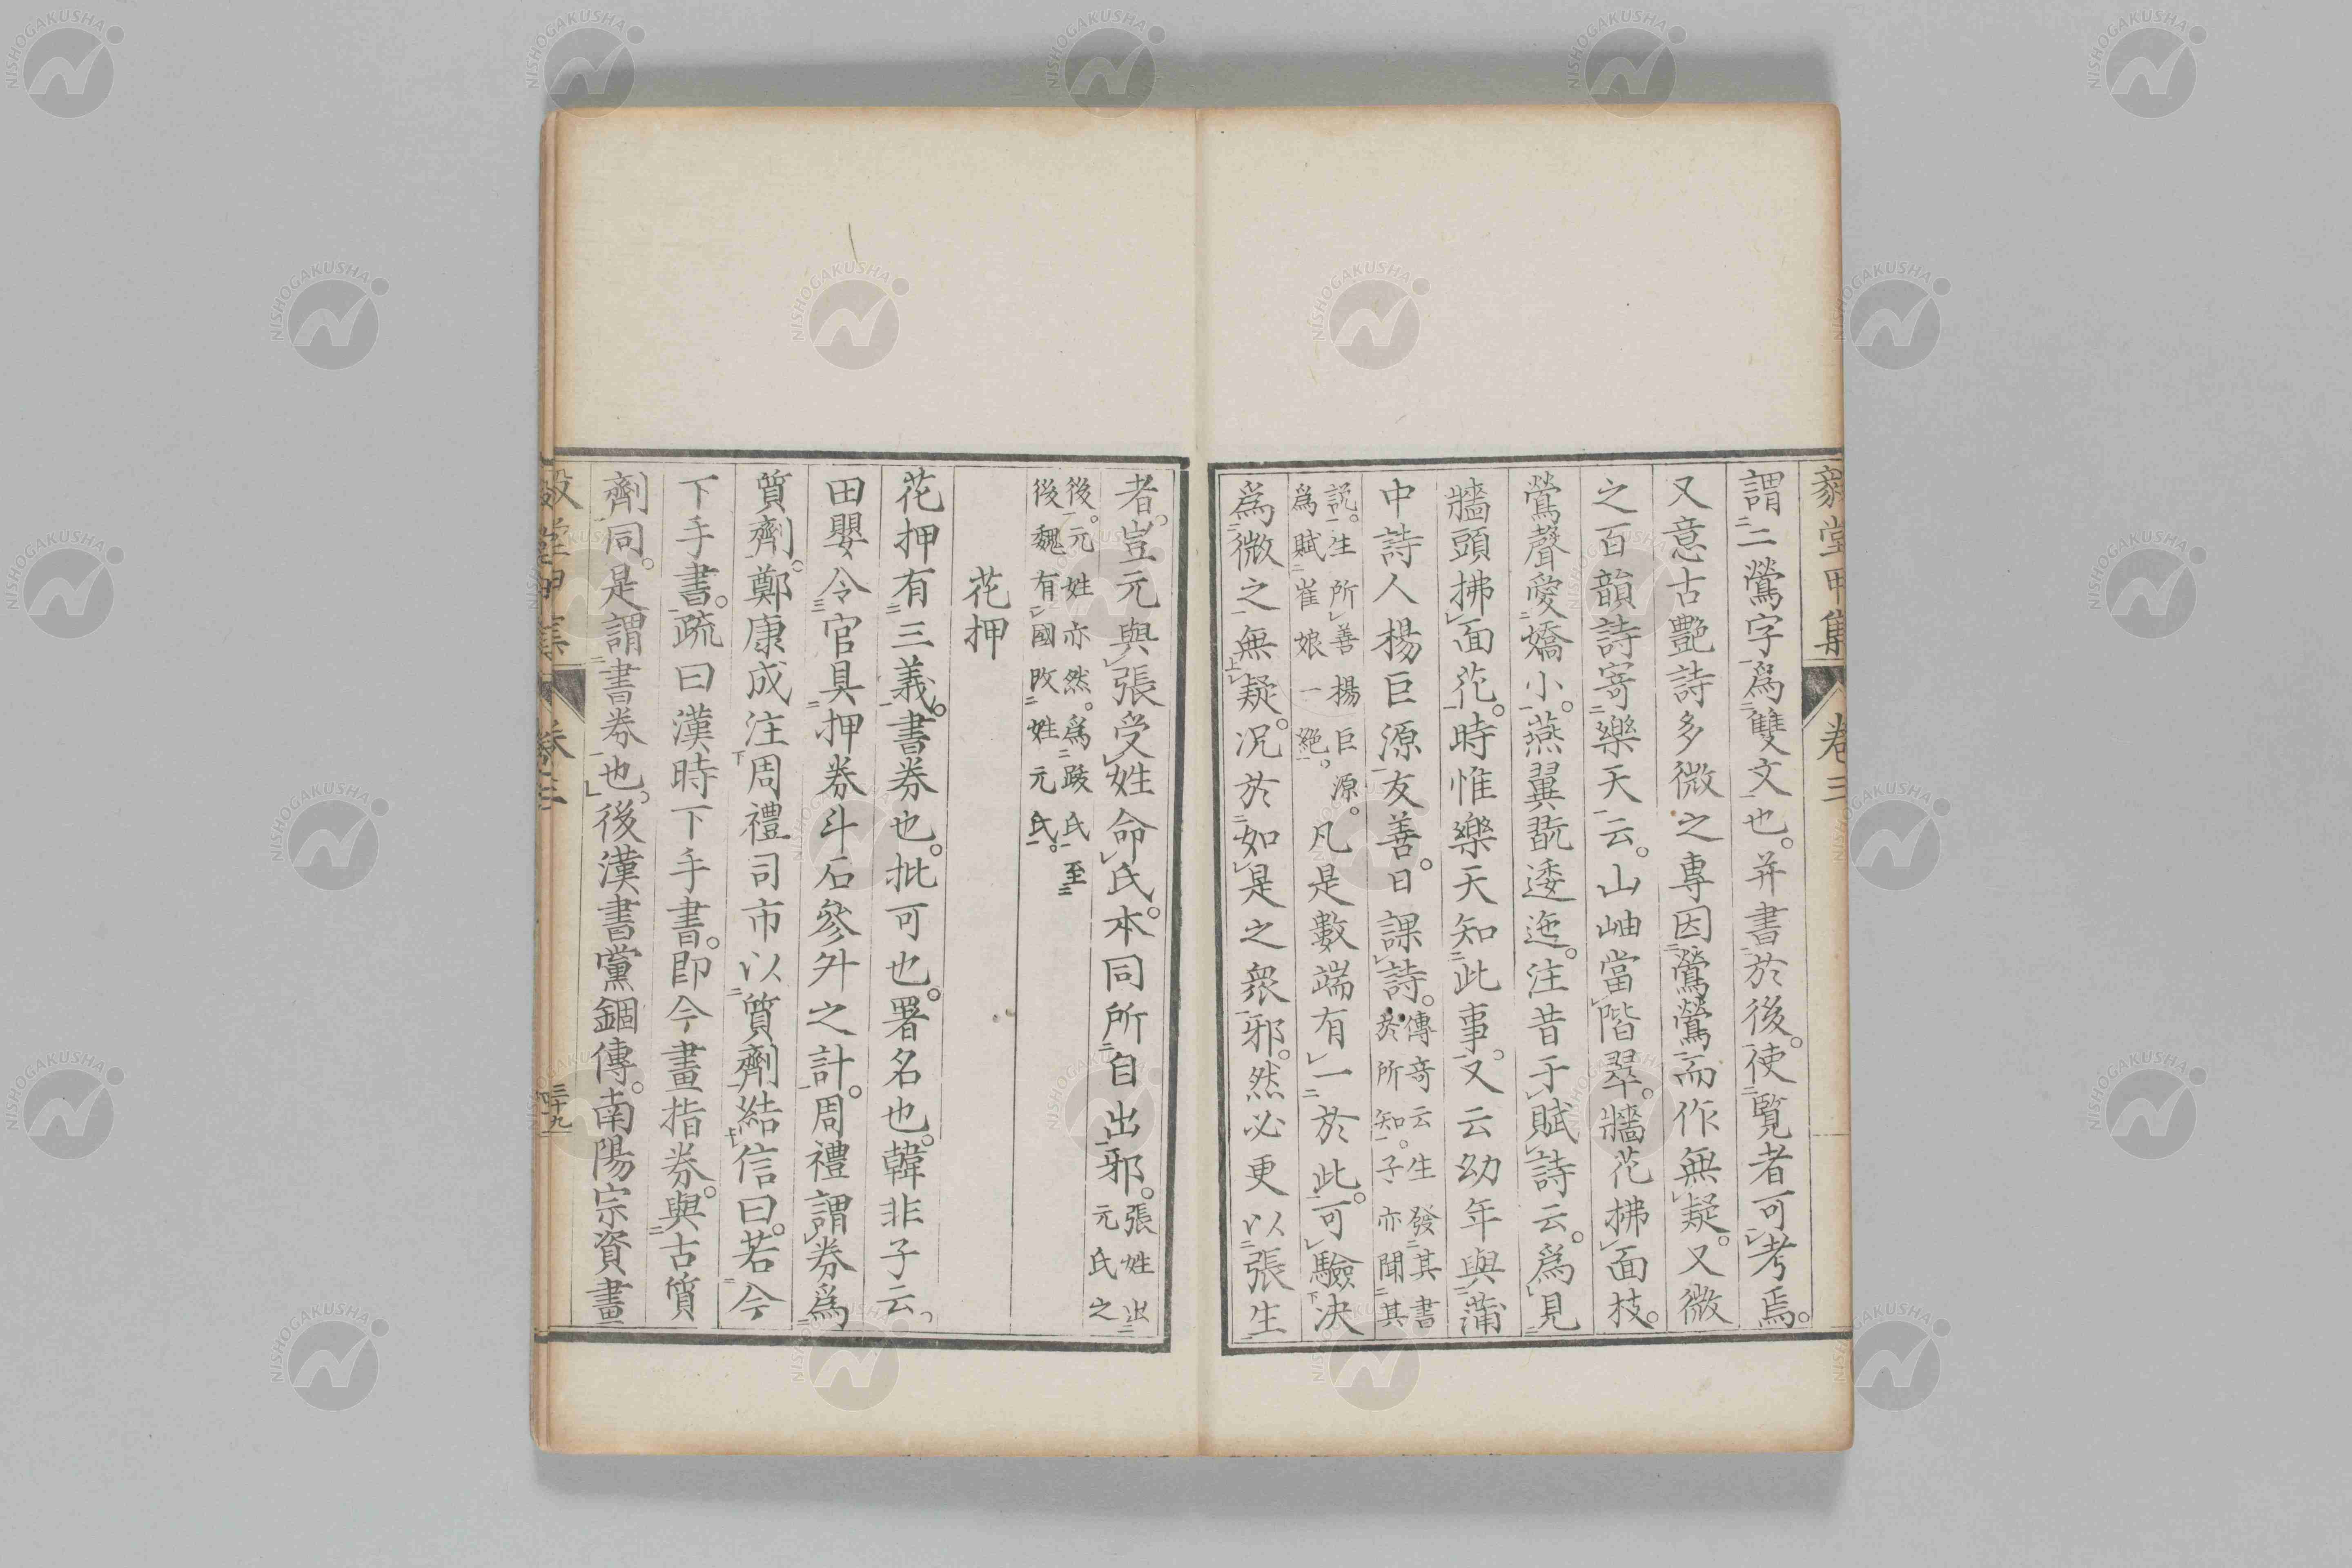 毅堂甲集 卷三
謂二鶯字爲雙文也。并書於後。使覽者可考焉。
又意古艷詩多微之專因鶯鶯而作無疑。又微
之百韻詩寄樂天云。山岫當階翠。牆花拂面枝。
鶯聲愛嬌小。燕翼翫逶迤。注昔予賦詩云。爲見
牆頭拂面花。時惟樂天知此事。又云幼年與蒲
中詩人楊巨源友善。日課詩。傳奇云生發其書
於所知。予亦聞其
說。生所善楊巨源。
爲賦崔娘一絕。
凡是數端有一於此。可驗決
爲微之無疑。况於如是之衆邪。然必更以張生
者。豈元與張受姓命氏。本同所自出邪。張姓出
元氏之
後。元姓亦然。爲跋氏至
後魏有國改姓元氏。
花押
花押有三義。書券也。批可也。署名也。韓非子云。
田嬰令官具押券斗石參升之計。周禮謂券爲
質劑。鄭康成注周禮司市以質劑結信曰。若今
下手書。疏曰漢時下手書。即今畫指券。與古質
劑同。是謂書券也。後漢書黨錮傳。南陽宗資畫
堂甲集 三十九
NISHOGAKUSHA